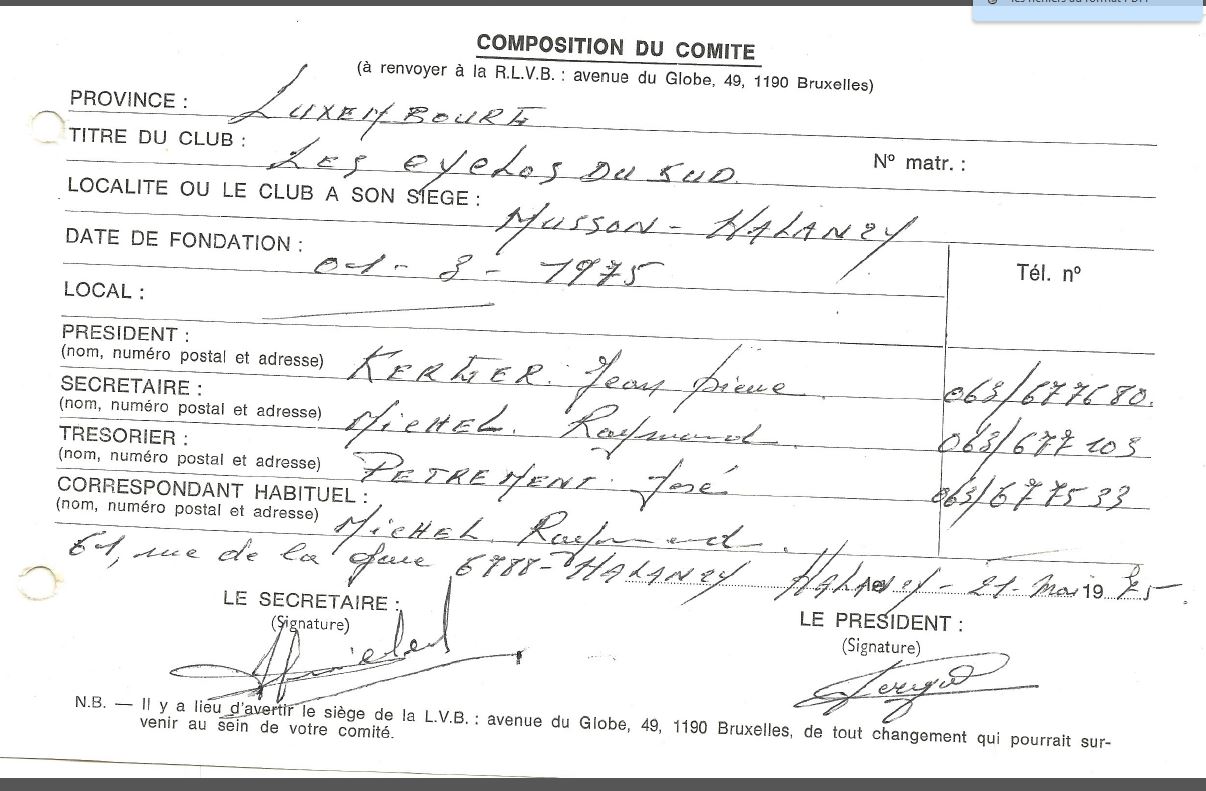 les fichiers au format PDF.
COMPOSITION DU COMITE
(à renvoyer à la R.L.V.B. : avenue du Globe, 49, 1190 Bruxelles)
PROVINCE : LUXEMBOURG
TITRE DU CLUB : LES CYCLOS DU SUD N° matr. :
LOCALITE OU LE CLUB A SON SIEGE : MUSSON - HALANZY
DATE DE FONDATION : 01 - 3 - 1975 Tél. n°
LOCAL :
PRESIDENT :
(nom, numéro postal et adresse) Jean Pierre 063/677680.
SECRETAIRE :
(nom, numéro postal et adresse) MICHEL Raymond 063/677103
TRESORIER :
(nom, numéro postal et adresse) PETREMENT José 063/677533
CORRESPONDANT HABITUEL :
(nom, numéro postal et adresse) MICHEL Raymond
61, rue de la gare 6788 - HALANZY HALANZY le - 21 - Mai 1975.
LE SECRETAIRE : LE PRESIDENT :
(Signature) (Signature)
N.B. — Il y a lieu d'avertir le siège de la L.V.B. : avenue du Globe, 49, 1190 Bruxelles, de tout changement qui pourrait sur-
venir au sein de votre comité.